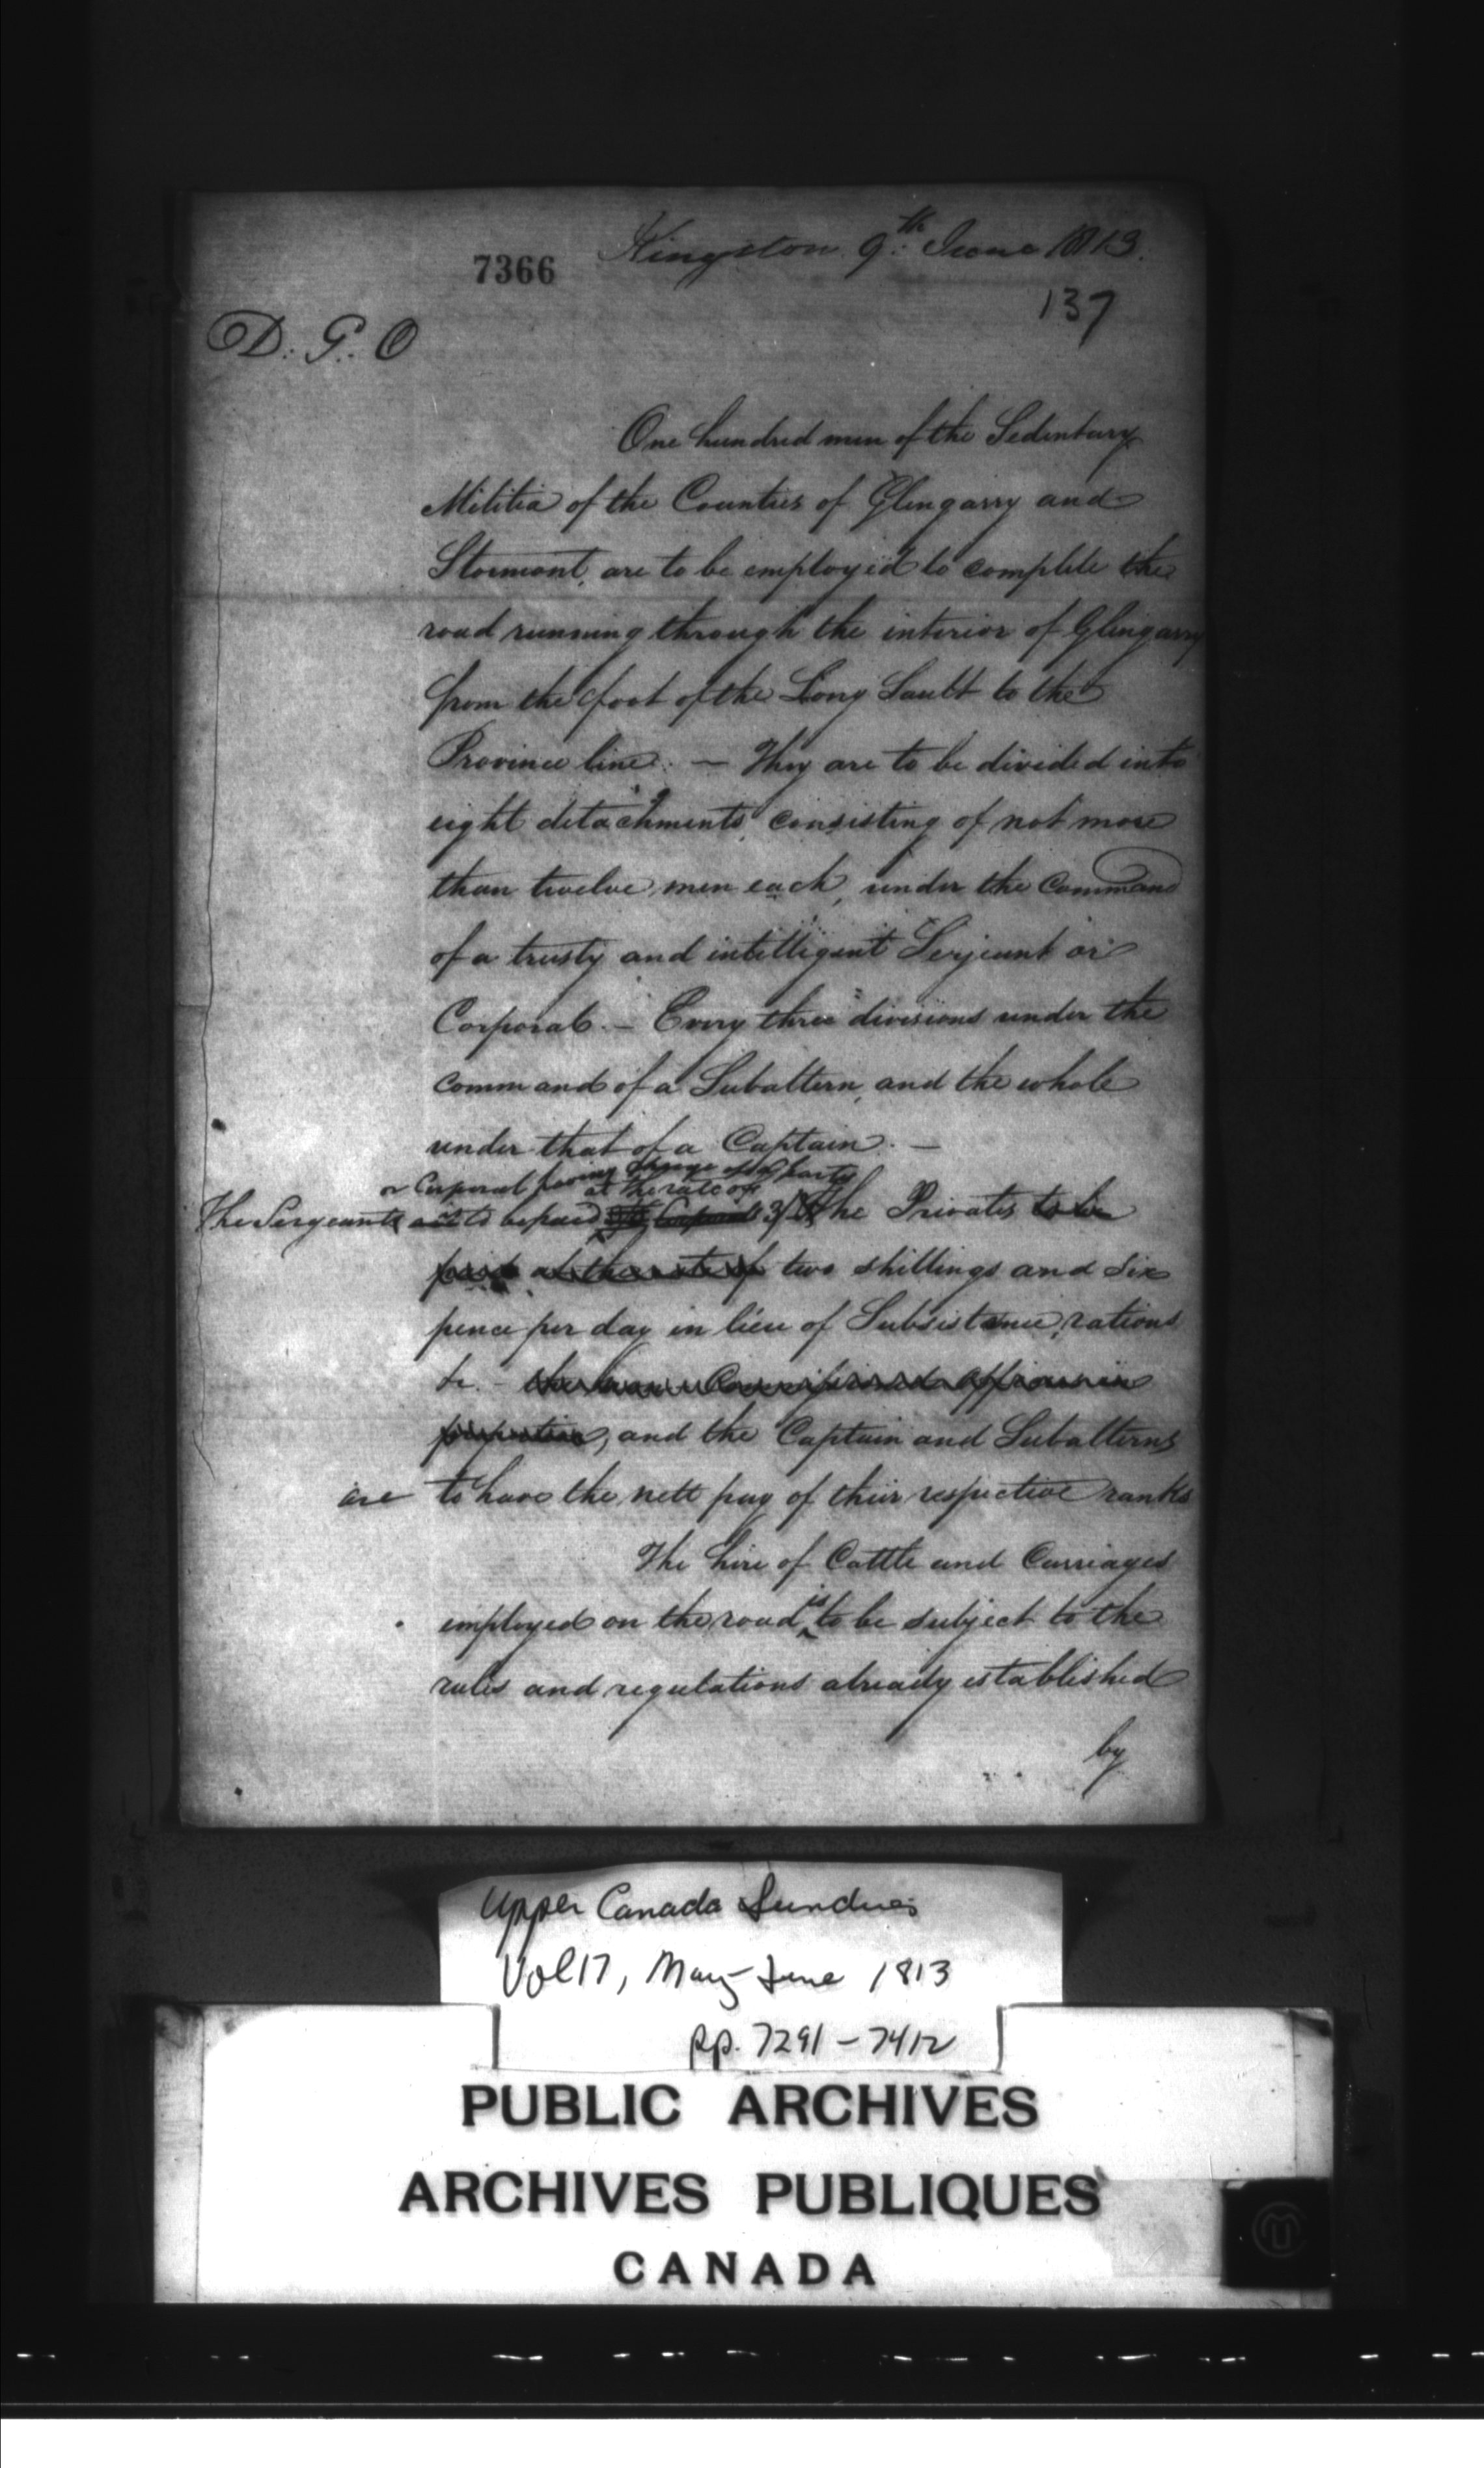 Kingston 9:th June 1813.
7366
137
D. G. O
One hundred men of the Sedentary
Militia of the Counties of Glengarry and
Stormont, are to be employed to complete the
road running through the interior of Glengarry
from the foot of the Long Sault to the
Province line. — They are to be divided into
eight detachments, consisting of not more
than twelve men each, under the Command
of a trusty and intelligent Serjeant or
Corporal. — Every three divisions under the
command of a Subaltern, and the whole
under that of a Captain. —
or Corporal having charge of a party
at the rate of
The Sergeants are to be paid 3/ The Privates to be
paid at the rate of two shillings and six
pence per day in lieu of Subsistence, rations
&c. - the Non Commissioned Officers in
proportion, and the Captain and Subalterns
are to have the nett pay of their respective ranks
The hire of Cattle and Carriages
is
employed on the road to be subject to the
rules and regulations already established
by
Upper Canada Sundries
Vol 17, May-June 1813
pp. 7291-7412
PUBLIC ARCHIVES
ARCHIVES PUBLIQUES
CANADA